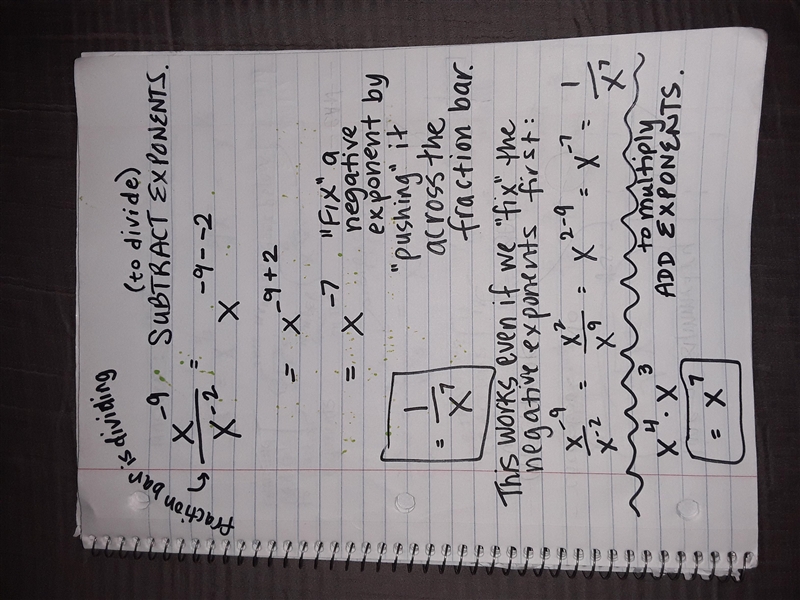 fraction bar is dividing
(to divide)
x^-9 SUBTRACT EXPONENTS.
x^-9/x^-2 = x^-9--2
= x^-9+2
= x^-7 "Fix" a
negative
exponent by
"pushing" it
across the
fraction bar.
= 1/x^7
This works even if we "fix" the
negative exponents first:
x^-9/x^-2 = x^2/x^9 = x^2-9 = x^-7 = 1/x^7
x^4 · x^3 to multiply
ADD EXPONENTS.
= x^7